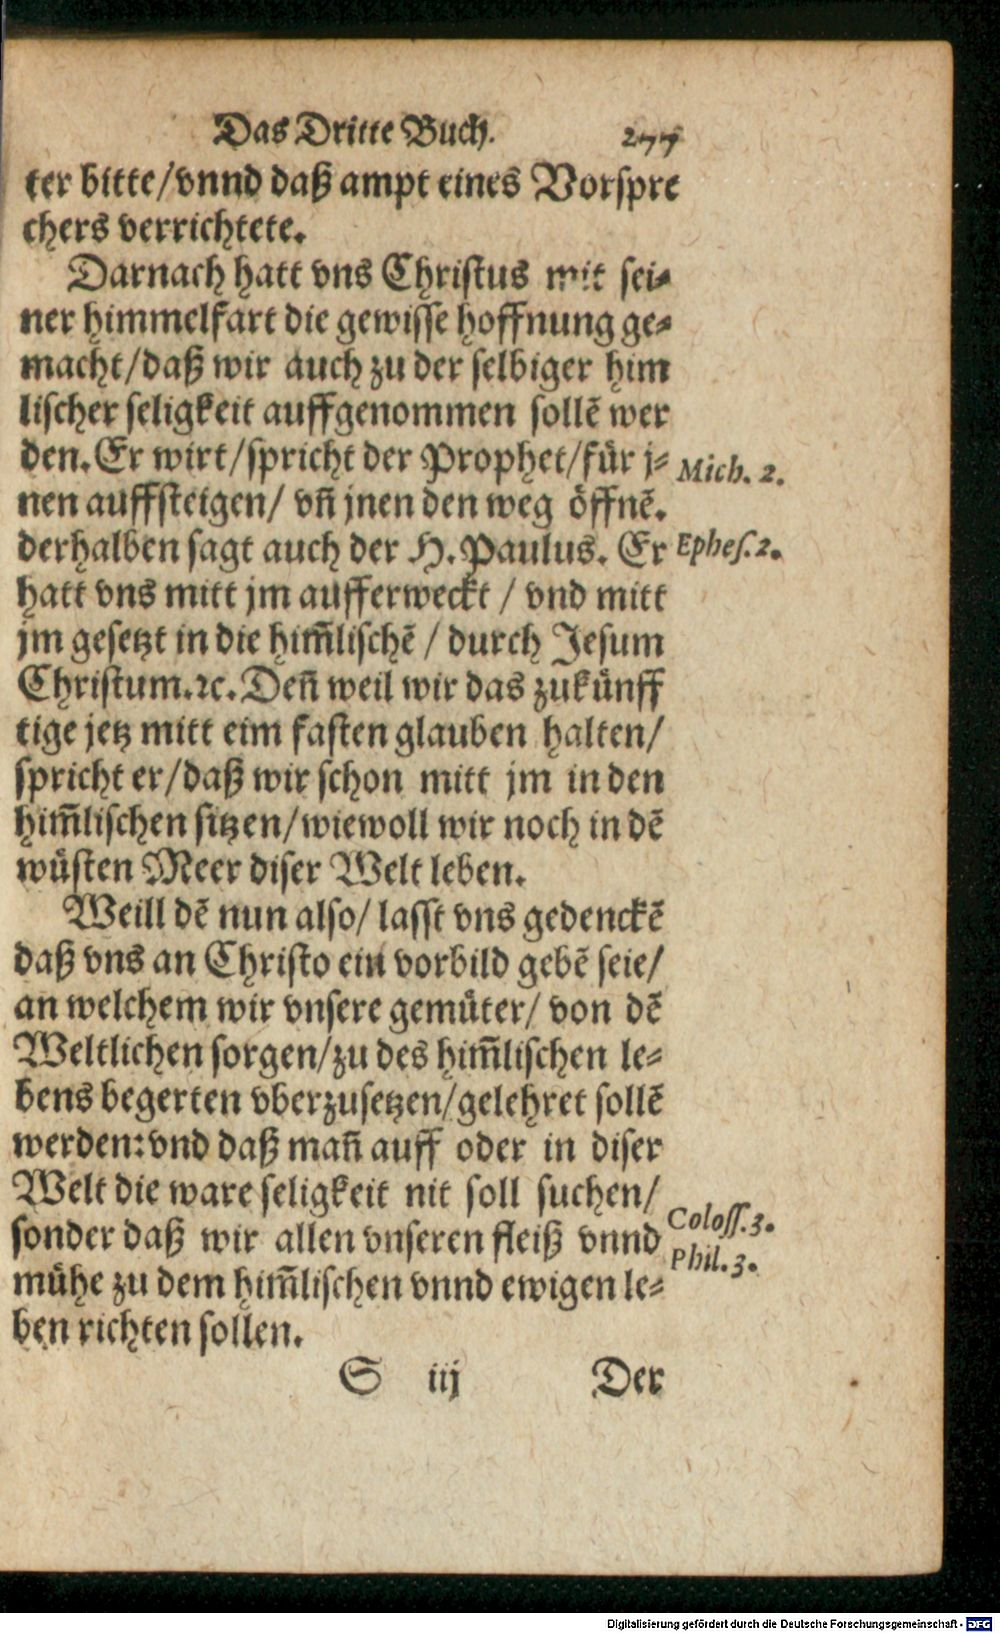 Das Dritte Buch. 277
ter bitte/vnnd daß ampt eines Vorspre
chers verrichtete.
Darnach hatt vns Christus mit sei⸗
ner himmelfart die gewisse hoffnung ge⸗
macht/daß wir auch zu der selbiger him
lischer seligkeit auffgenommen sollẽ wer
den. Er wirt/spricht der Prophet/für j⸗
Mich. 2.
nen auffsteigen/ vñ jnen den weg öffnẽ.
derhalben sagt auch der H. Paulus. Er
Ephes. 2.
hatt vns mitt jm aufferweckt / vnd mitt
jm gesetzt in die him̃lischẽ / durch Jesum
Christum.ꝛc. Deñ weil wir das zukünff
tige jetz mitt eim fasten glauben halten/
spricht er/daß wir schon mitt jm in den
him̃lischen sitzen/wiewoll wir noch in dẽ
wüsten Meer diser Welt leben.
Weill dẽ nun also/ lasst vns gedenckẽ
daß vns an Christo ein vorbild gebẽ seie/
an welchem wir vnsere gemüter/ von dẽ
Weltlichen sorgen/zu des him̃lischen le⸗
bens begerten vberzusetzen/gelehret sollẽ
werden: vnd daß mañ auff oder in diser
Welt die ware seligkeit nit soll suchen/
sonder daß wir allen vnseren fleiß vnnd
Coloss. 3.
Phil. 3.
mühe zu dem him̃lischen vnnd ewigen le⸗
ben richten sollen.
S iij Der
Digitalisierung gefördert durch die Deutsche Forschungsgemeinschaft - DFG